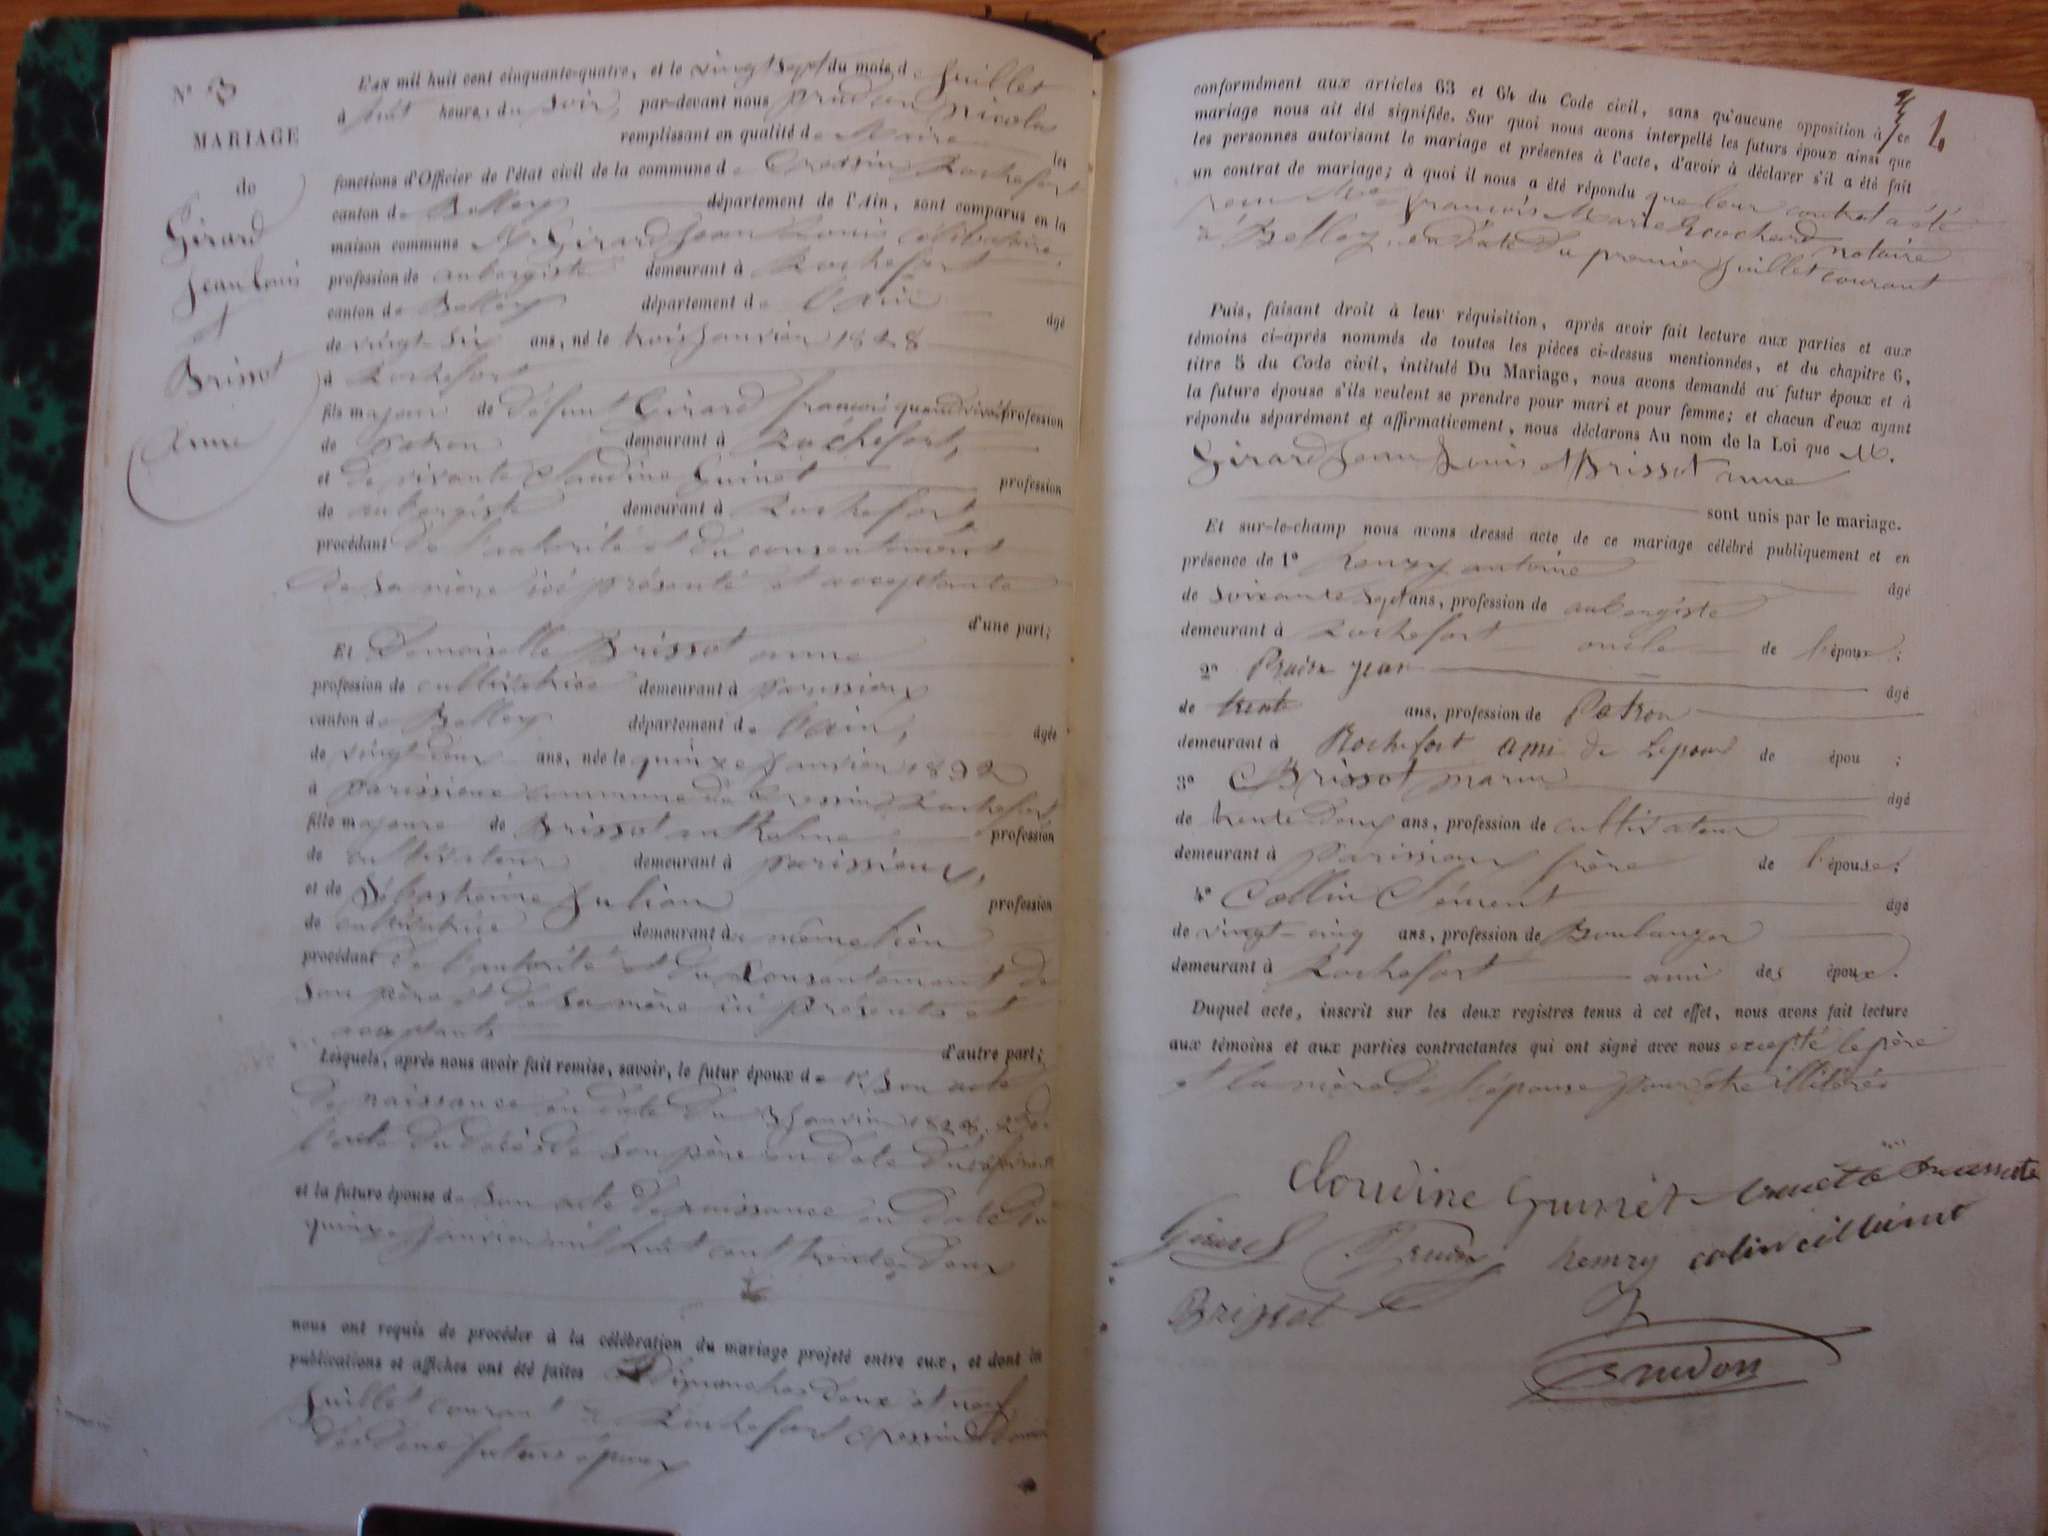 N° 3
MARIAGE
de
Girard
Jean Louis
et
Brissot
Anne
L'an mil huit cent cinquante-quatre, et le vingt Sept du mois de Juillet
à huit heures du Soir, par-devant nous Prudon Nicolas
remplissant en qualité de Maire les
fonctions d'Officier de l'état civil de la commune de Cressin Rochefort
canton de Belley département de l'Ain, sont comparus en la
maison commune M. Girard Jean Louis célibataire,
profession de aubergiste demeurant à Rochefort
canton de Belley département de l'Ain âgé
de vingt-six ans, né le trois janvier 1828
à Rochefort
fils majeur de défunt Girard françois quand vivait profession
de patron demeurant à Rochefort,
et de vivante Claudine Guinet profession
de aubergiste demeurant à Rochefort,
procédant de l'autorité et du consentement
de sa mère ici présente et acceptante
d'une part;
Et Demoiselle Brissot anne
profession de cultivatrice demeurant à parissieux
canton de Belley département de l'ain, âgée
de vingt deux ans, née le quinze janvier 1832
à parissieux commune de Cressin Rochefort
fille majeure de Brissot anthelme profession
de cultivateur demeurant à parissieux,
et de Sébastienne Julian profession
de cultivatrice demeurant à même lieu
procédant de l'autorité et du Consentement de
son père et de sa mère ici présents et
acceptants
d'autre part;
Lesquels, après nous avoir fait remise, savoir, le futur époux de 1° son acte
de naissance en date du 3 janvier 1828. 2° de
l'acte du décès de son père en date du
et la future épouse de son acte de naissance en date du
quinze janvier mil huit cent trente deux
nous ont requis de procéder à la célébration du mariage projeté entre eux, et dont les
publications et affiches ont été faites Dimanches deux et neuf
Juillet courant à Rochefort Cressin
des deux futurs époux
4
conformément aux articles 63 et 64 du Code civil, sans qu'aucune opposition à ce
mariage nous ait été signifiée. Sur quoi nous avons interpellé les futurs époux ainsi que
les personnes autorisant le mariage et présentes à l'acte, d'avoir à déclarer s'il a été fait
un contrat de mariage; à quoi il nous a été répondu que leur contrat a été
reçu Me françois Marie Rochard notaire
à Belley, en date du premier Juillet courant
Puis, faisant droit à leur réquisition, après avoir fait lecture aux parties et aux
témoins ci-après nommés de toutes les pièces ci-dessus mentionnées, et du chapitre 6,
titre 5 du Code civil, intitulé Du Mariage, nous avons demandé au futur époux et à
la future épouse s'ils veulent se prendre pour mari et pour femme; et chacun d'eux ayant
répondu séparément et affirmativement, nous déclarons Au nom de la Loi que M.
Girard Jean Louis et Brissot anne
sont unis par le mariage.
Et sur-le-champ nous avons dressé acte de ce mariage célébré publiquement et en
présence de 1° antoine âgé
de soixante sept ans, profession de aubergiste
demeurant à Rochefort oncle de l'époux;
2° Jean âgé
de trente ans, profession de Patron
demeurant à Rochefort ami de Lepoux de épou ;
3° Brissot marin âgé
de trente deux ans, profession de cultivateur
demeurant à parissieux frère de l'épouse;
4° Collin Clément âgé
de vingt-cinq ans, profession de Boulanger
demeurant à Rochefort ami des époux.
Duquel acte, inscrit sur les deux registres tenus à cet effet, nous avons fait lecture
aux témoins et aux parties contractantes qui ont signé avec nous excepté le père
et la mère de l'épouse pour être illitérés
Cloudine Guinet
Girard Prudon henry colin
Brissot
Prudon